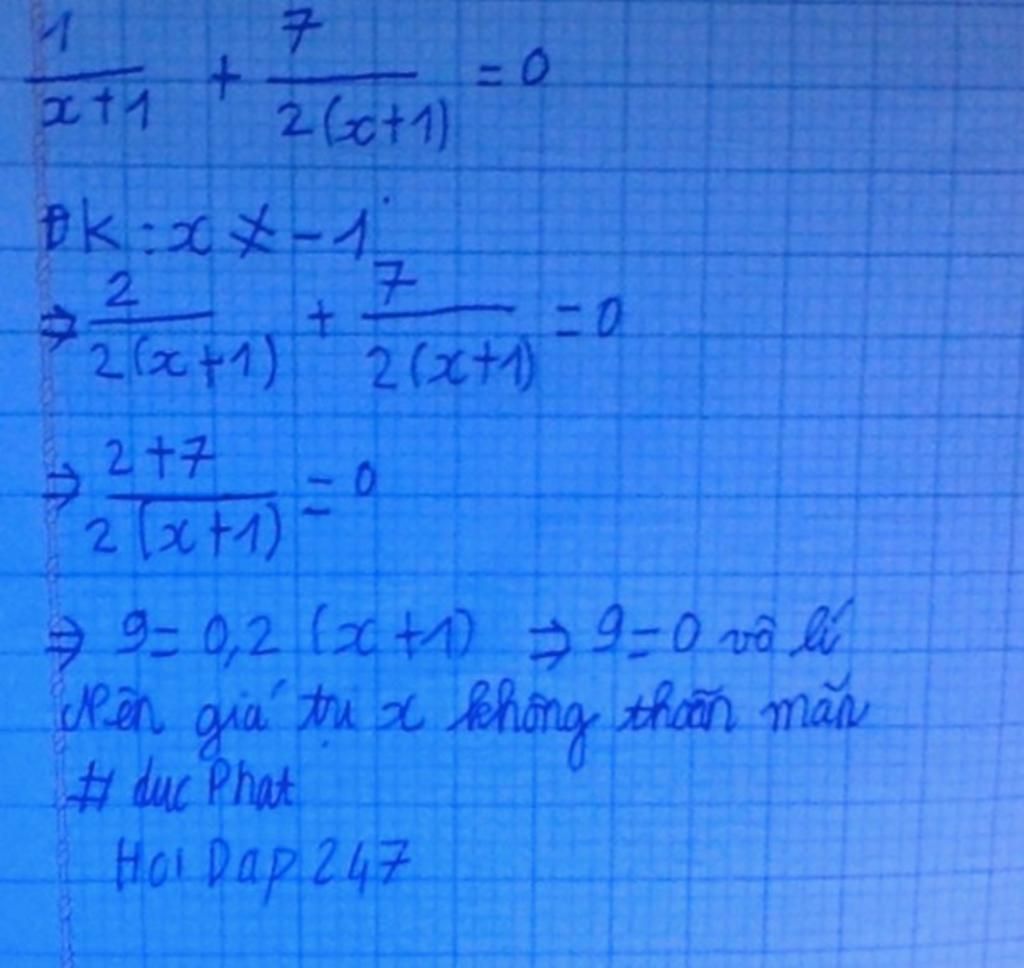 1/(x+1) + 7/(2(x+1)) = 0
ĐK : x ≠ -1
⇒ 2/(2(x+1)) + 7/(2(x+1)) = 0
⇒ (2+7)/(2(x+1)) = 0
⇒ 9 = 0,2 (x+1) ⇒ 9 = 0 vô lí
Nên giá trị x không thoãn mãn
# duc Phat
Hoi Dap 247